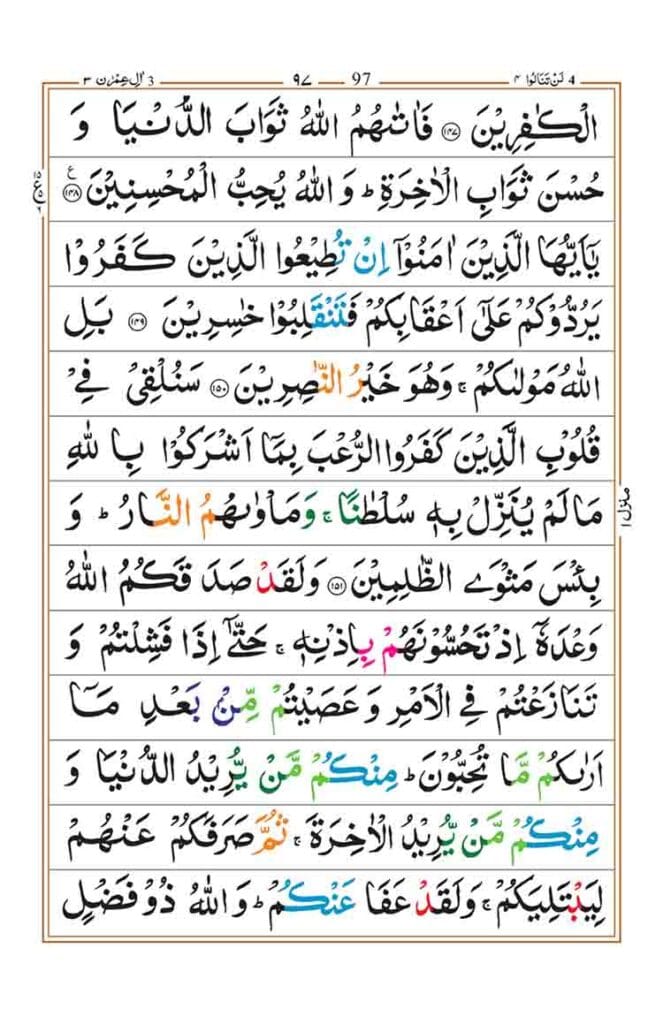 لَنْ تَنَالُوا ٤ 4 97 ٩٧ اٰلِ عِمْرٰن ٣ 3
الْكٰفِرِيْنَ ﴿۱۴۷﴾ فَاٰتٰىهُمُ اللّٰهُ ثَوَابَ الدُّنْيَا وَ
حُسْنَ ثَوَابِ الْاٰخِرَةِ ؕ وَ اللّٰهُ يُحِبُّ الْمُحْسِنِيْنَ ﴿۱۴۸﴾ ع
يٰۤاَيُّهَا الَّذِيْنَ اٰمَنُوْۤا اِنْ تُطِيْعُوا الَّذِيْنَ كَفَرُوْا
يَرُدُّوْكُمْ عَلٰۤى اَعْقَابِكُمْ فَتَنْقَلِبُوْا خٰسِرِيْنَ ﴿۱۴۹﴾ بَلِ
اللّٰهُ مَوْلٰىكُمْ ۚ وَهُوَ خَيْرُ النّٰصِرِيْنَ ﴿۱۵۰﴾ سَنُلْقِيْ فِيْ
قُلُوْبِ الَّذِيْنَ كَفَرُوا الرُّعْبَ بِمَاۤ اَشْرَكُوْا بِاللّٰهِ
مَا لَمْ يُنَزِّلْ بِهٖ سُلْطٰنًا ۚ وَمَاْوٰىهُمُ النَّارُ ؕ وَ
بِئْسَ مَثْوَى الظّٰلِمِيْنَ ﴿۱۵۱﴾ وَلَقَدْ صَدَقَكُمُ اللّٰهُ
وَعْدَهٗۤ اِذْ تَحُسُّوْنَهُمْ بِاِذْنِهٖ ۚ حَتّٰۤى اِذَا فَشِلْتُمْ وَ
تَنَازَعْتُمْ فِي الْاَمْرِ وَ عَصَيْتُمْ مِّنْۢ بَعْدِ مَاۤ
اَرٰىكُمْ مَّا تُحِبُّوْنَ ؕ مِنْكُمْ مَّنْ يُّرِيْدُ الدُّنْيَا وَ
مِنْكُمْ مَّنْ يُّرِيْدُ الْاٰخِرَةَ ۚ ثُمَّ صَرَفَكُمْ عَنْهُمْ
لِيَبْتَلِيَكُمْ ۚ وَلَقَدْ عَفَا عَنْكُمْ ؕ وَ اللّٰهُ ذُوْ فَضْلٍ
منزل ۱